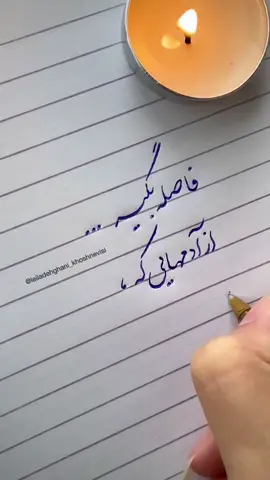 فاصله بگیر ...
از آدمهایی که ،
@leiladehghani_khoshnevisi